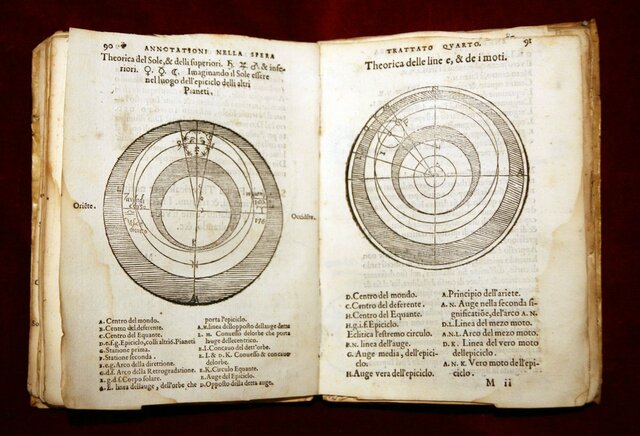 90
ANNOTATIONI NELLA SPERA
Theorica del Sole, & della superiori. ♄ ♃ ♂, & infe-
riori. ♀. ☿. ☾. Imaginando il Sole essere
nel luogo dell'epiciclo delli altri
Pianeti.
Oriẽte.
Occidẽte.
A. Centro del mondo.
B. Centro del deferente.
C. Centro del Equante.
D.e.f.g. Epiciclo, colli altri S. Pianeti
E. Stazione prima.
Statione seconda.
e.g. Arco della direttione.
G.d.f. Arco della Retrogradatione.
g.d.f. Corpo solare.
L. linea dellauge, dell'orbe che
porta l'epiciclo.
linea dellopposto dellauge detta
M. Conuesso delorbe che porta
lauge delleccentrico.
Concauo dett'orbe.
I. & D. K. Conuesso & concauo
delorbe.
K. Circulo Equante.
Auge del Epiciclo.
D. Opposto della detta auge.
TRATTATO QVARTO.
91
Theorica delle line e, & de i moti.
D. Centro del mondo.
C. Centro del deferente.
H. Centro del Equante.
H.g.i.f. Epiciclo.
Eclitica l'estremo circulo.
B.N. linea dell'auge.
G. Auge media, dell'epici-
clo.
H. Auge vera dell'epiciclo.
A. Principio dell'ariete.
A. N. Auge nella seconda si-
gnificatiõe, del'arco A. N.
D.L. Linea del mezo moto.
A.N.L. Arco del mezo moto.
D.K. Linea del vero moto
dellepiciclo.
A. N. K. Vero moto dell'epi-
ciclo.
M ii